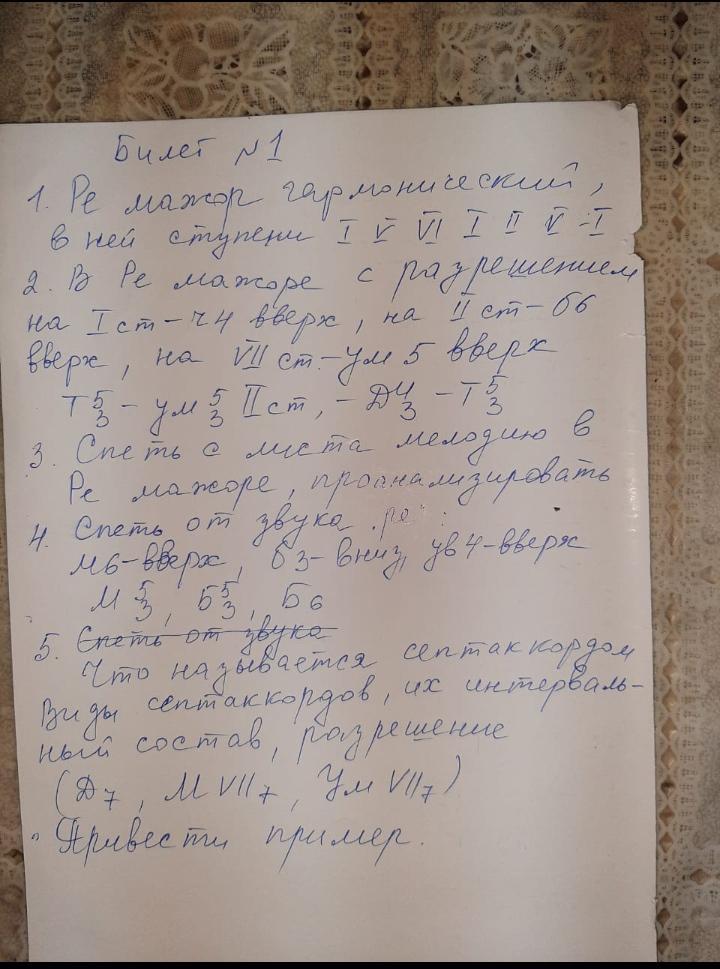 Билет №1
1. Ре мажор гармонический,
в ней ступени I V VI I II V-I
2. В Ре мажоре с разрешением
на I ст-ч4 вверх, на II ст-б6
вверх, на VII ст-ум 5 вверх
Т 5/3 - ум 5/3 II ст, - Д 4/3 - Т 5/3
3. Спеть с листа мелодию в
Ре мажоре, проанализировать
4. Спеть от звука ре:
м6-вверх, б3-вниз, ув4-вверх
М 5/3, Б 5/3, Б6
5. Спеть от звука
Что называется септаккордом
Виды септаккордов, их интерваль-
ный состав, разрешение
(Д7, М VII7, Ум VII7)
Привести пример.